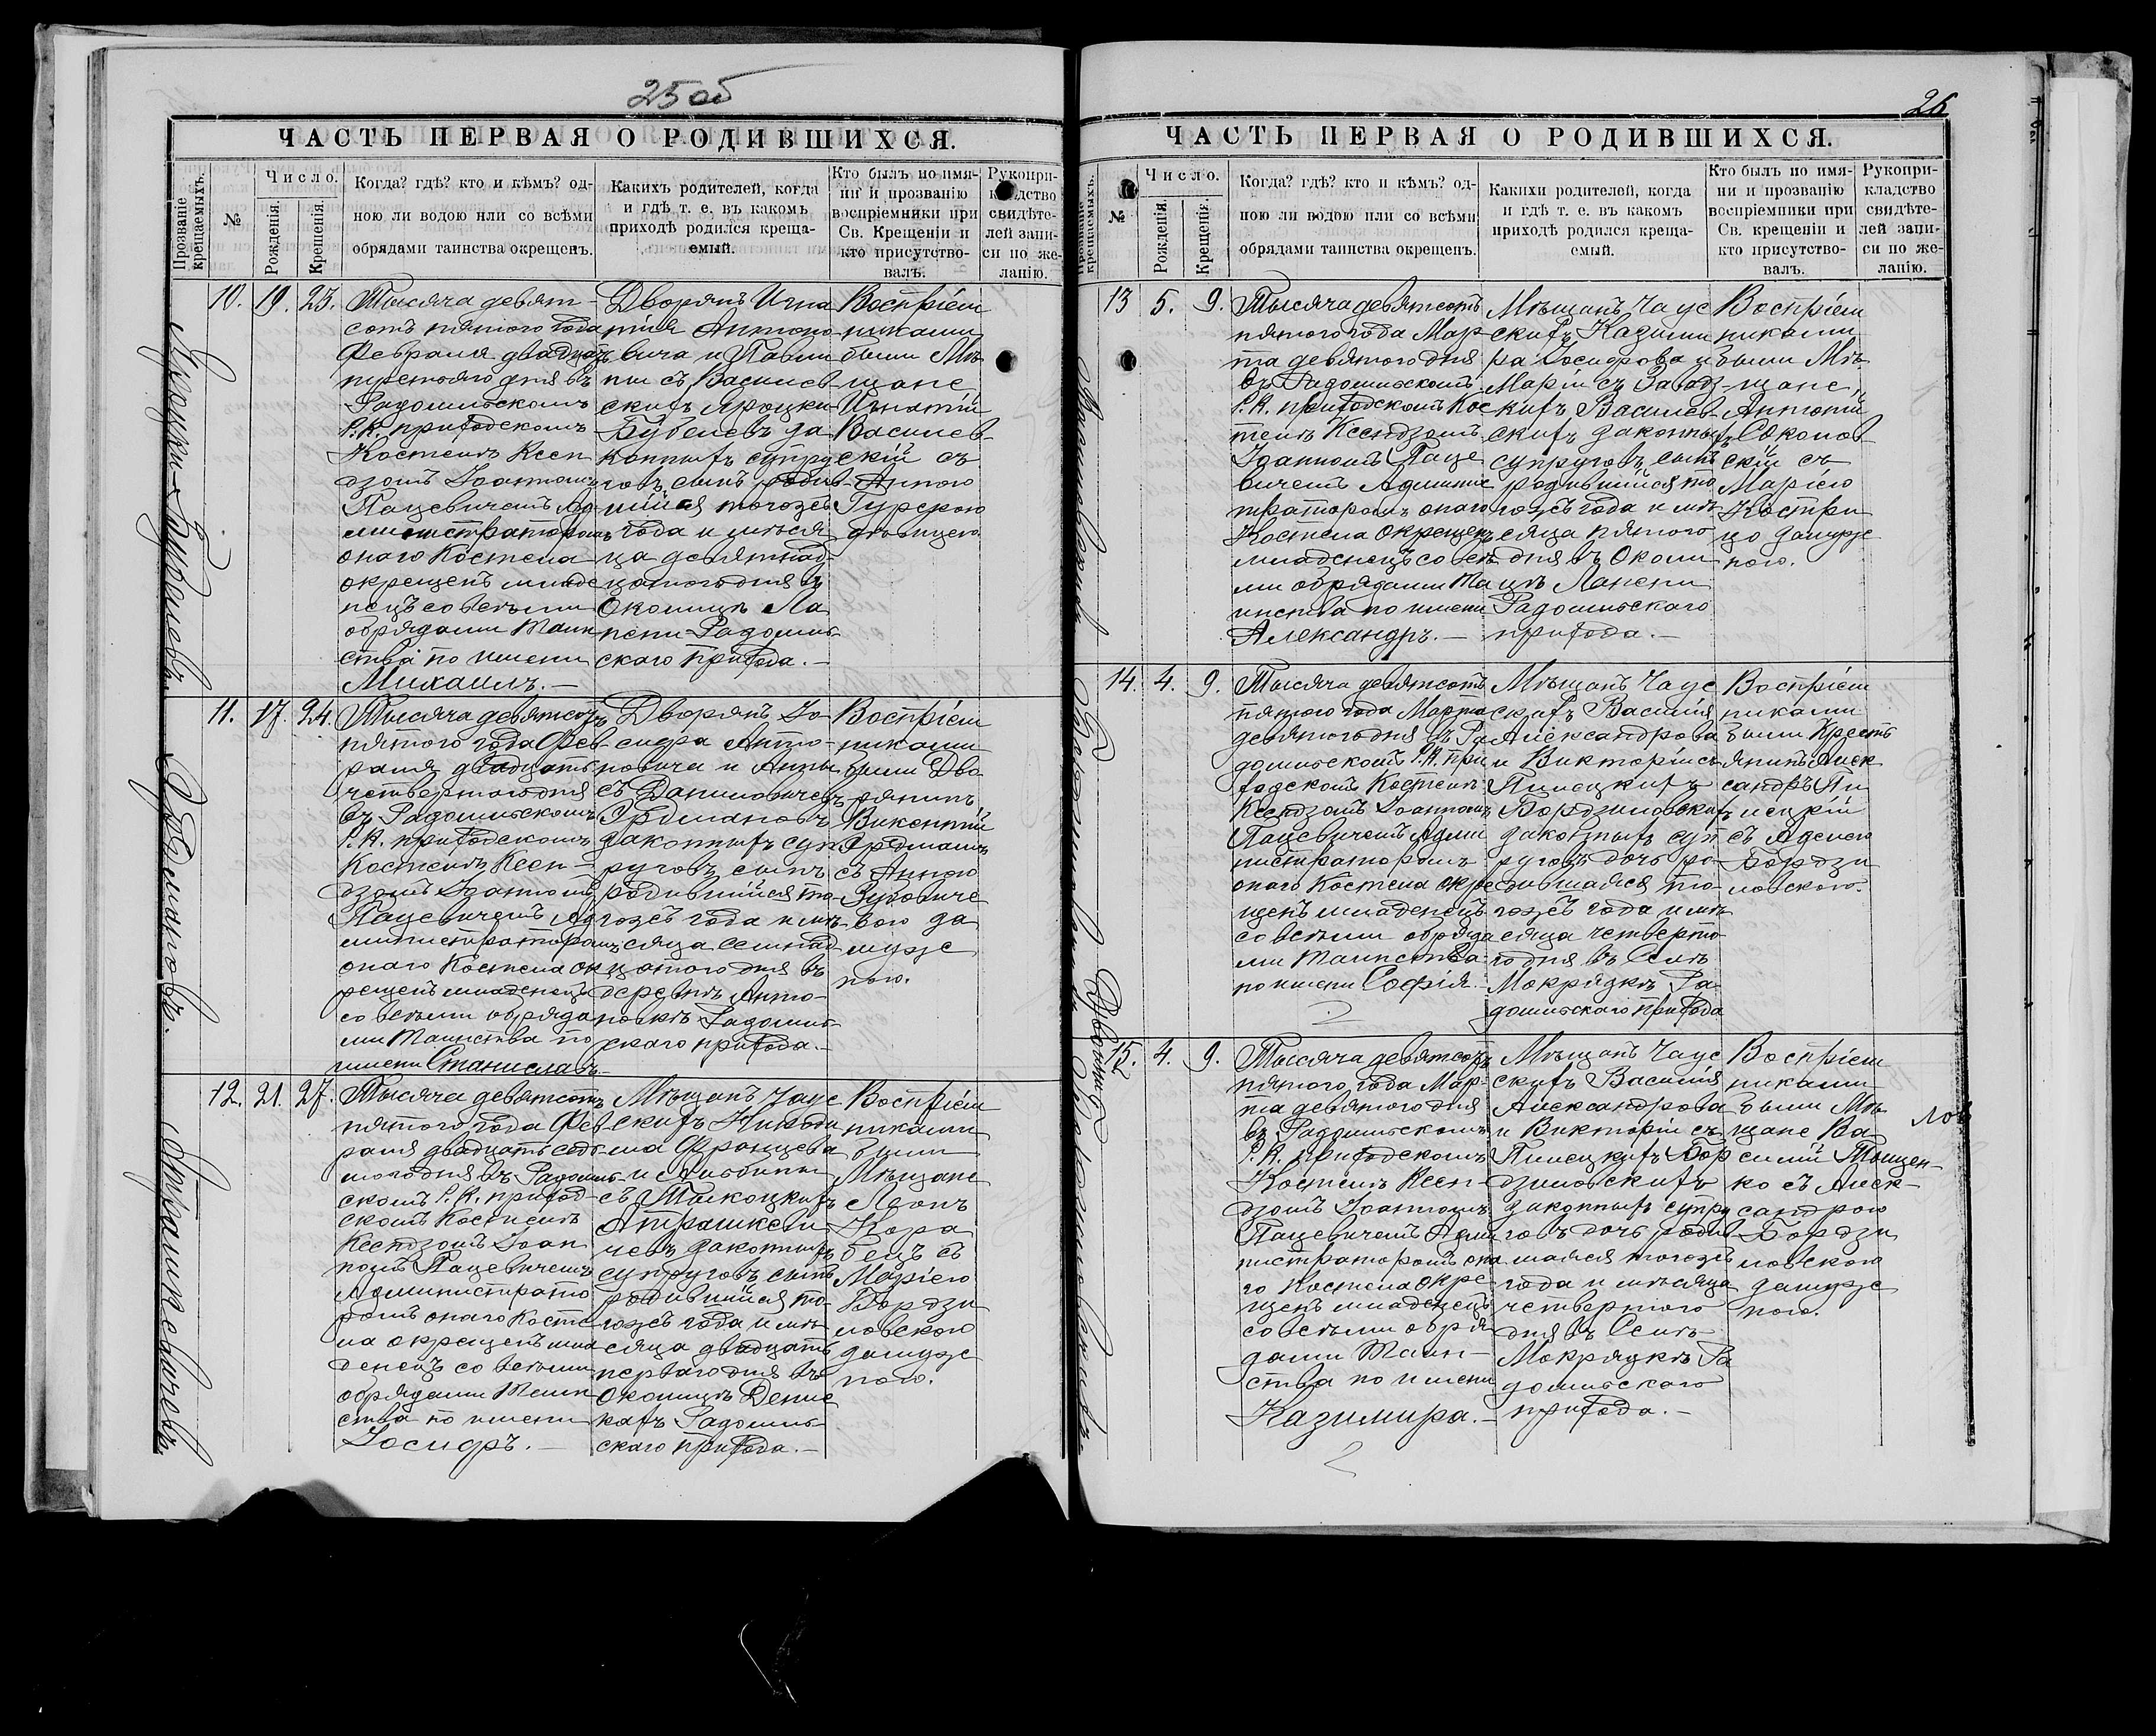 25 об
ЧАСТЬ ПЕРВАЯ О РОДИВШИХСЯ.
Прозваніе крещаемыхъ.
№
Число.
Рожденія.
Крещенія.
Когда? гдѣ? кто и кѣмъ? од-
ною ли водою или со всѣми
обрядами таинства окрещенъ.
Какихъ родителей, когда
и гдѣ т. е. въ какомъ
приходѣ родился креща-
емый.
Кто былъ по имя-
ни и прозванію
воспріемники при
Св. Крещеніи и
кто присутство-
валъ.
Рукопри-
кладство
свидѣте-
лей запи-
си по же-
ланію.
10. 19. 23.
Тысяча девят-
сотъ пятого года
Февраля двадцать
третьяго дня въ
Радомльскомъ
Р.К. приходскомъ
Костелѣ Ксен
дзомъ Іоанномъ
Пацевичемъ Ад
министраторомъ
онаго Костела
окрещенъ младе
нецъ со всѣми
обрядами Таин
ства по имени
Михаилъ.-
Дворянъ Игна
тія Антоно
вича и Павли
ны съ Василев
скихъ
законныхъ супру
говъ сынъ родив
шійся тогожъ
года и мѣся
ца девятнад-
цатого дня въ
Околицѣ Ла
пени Радомль
скаго Прихода.-
Воспріем
никами
были Мѣ
щане
Игнатій
Василев-
скій съ
Анною
Гурскою
дѣвицею.
11. 17. 24.
Тысяча девятсотъ
пятого года Фев-
раля двадцать
четвертого дня
въ Радомльскомъ
Р.К. приходскомъ
Костелѣ Ксен-
дзомъ Іоанномъ
Пацевичемъ Ад
министраторомъ
онаго Костела ок
рещенъ младенецъ
со всѣми обряда
ми Таинства по
имени Станиславъ.
Дворянъ Іо-
сифа Анто-
новича и Анны
съ Даниловичевъ
Эрдмановъ
законныхъ суп
руговъ сынъ
родившійся то-
гожъ года и мѣ-
сяца семнад
цатого дня въ
деревнѣ Анто-
новкѣ Радомль
скаго прихода.-
Воспріем
никами
были Дво
рянинъ
Викентій
Эрдманъ
съ Анною
Зуковиче
вою за
муж
ною.
12. 21. 27.
Тысяча девятсотъ
пятого года Фев-
раля двадцать седь
мого дня въ Радомль-
скомъ Р.К. приход-
скомъ Костелѣ
Ксендзомъ Іоан
номъ Пацевичемъ
Администрато
ромъ онаго Косте
ла окрещенъ мла
денецъ со всѣми
обрядами Таин
ства по имени
Іосифъ.-
Мѣщанъ Чаус
скихъ Никоди
ма Францева
и Альбины
съ Тыкоцкихъ
Атрашкеви-
чевъ законныхъ
супруговъ сынъ
родившійся то-
гожъ года и мѣ
сяца двадцать
перваго дня въ
околицѣ Дени
кахъ Радомль
скаго прихода.-
Воспріем
никами
были
Мѣщане
Леонъ
Кора
бецъ съ
Маріею
Бордзи
ловскою
замуж
ною.
Атрашкевичевъ.
26
ЧАСТЬ ПЕРВАЯ О РОДИВШИХСЯ.
Прозваніе крещаемыхъ.
№
Число.
Рожденія.
Крещенія.
Когда? гдѣ? кто и кѣмъ? од-
ною ли водою или со всѣми
обрядами таинства окрещенъ.
Какихи родителей, когда
и гдѣ т. е. въ какомъ
приходѣ родился креща-
емый.
Кто былъ по имя-
ни и прозванію
воспріемники при
Св. крещеніи и
кто присутство-
валъ.
Рукопри-
кладство
свидѣте-
лей запи-
си по же-
ланію.
13 5. 9.
Тысяча девятсотъ
пятого года Мар-
та девятого дня
въ Радомльскомъ
Р.К. приходскомъ Кос
телѣ Ксендзомъ
Іоанномъ Паце
вичемъ Админис
траторомъ онаго
Костела окрещенъ
младенецъ со всѣ
ми обрядами Та
инства по имени
Александръ.-
Мѣщанъ Чаус
скихъ Казими
ра Іосифова и
Маріи съ
Василев
скихъ законныхъ
супруговъ сынъ
родившійся то
гожъ года и мѣ
сяца пятого
дня въ Околи
цѣ Лапени
Радомльскаго
прихода.-
Воспріем
никами
были Мѣ
щане,
Антоній
Соколов
скій съ
Маріею
замуж
ною.
14. 4. 9.
Тысяча девятсотъ
пятого года Марта
девятого дня въ Ра
домльскомъ Р.К. при
ходскомъ Костелѣ
Ксендзомъ Іоанномъ
Пацевичемъ Адми
нистраторомъ
онаго Костела окре
щенъ младенецъ
со всѣми обряда
ми Таинства
по имени Софія.
Мѣщанъ Чаус
скихъ Василія
Александрова
и Викторіи съ
Пилецкихъ
Бордзиловскихъ
законныхъ суп
руговъ дочь ро-
дившаяся то-
гожъ года и мѣ
сяца четверто
го дня въ Селѣ
Мокрядкѣ Ра
домльскаго прихода
Воспріем
никами
были Кресть
янинъ Алек
сандръ Пи
лецкій
съ
Бордзи
ловскою.
15. 4. 9.
Тысяча девятсотъ
пятого года Мар-
та девятого дня
въ Радомльскомъ
Р.К. приходскомъ
Костелѣ Ксен-
дзомъ Іоанномъ
Пацевичемъ Адми
нистраторомъ она
го Костела окре-
щенъ младенецъ
со всѣми обря
дами Таин-
ства по имени
Казимира.-
Мѣщанъ Чаус
скихъ Василія
Александрова
и Викторіи съ
Пилецкихъ Бор
дзиловскихъ
законныхъ супру
говъ дочь родив
шаяся тогожъ
года и мѣсяца
четвертого
дня въ Селѣ
Мокрядкѣ Ра
домльскаго
прихода.-
Воспріем
никами
были Мѣ
щане Ва
силій Тыщен-
ко съ Алек-
сандрою
Бордзи
ловскою
замуж
ною.